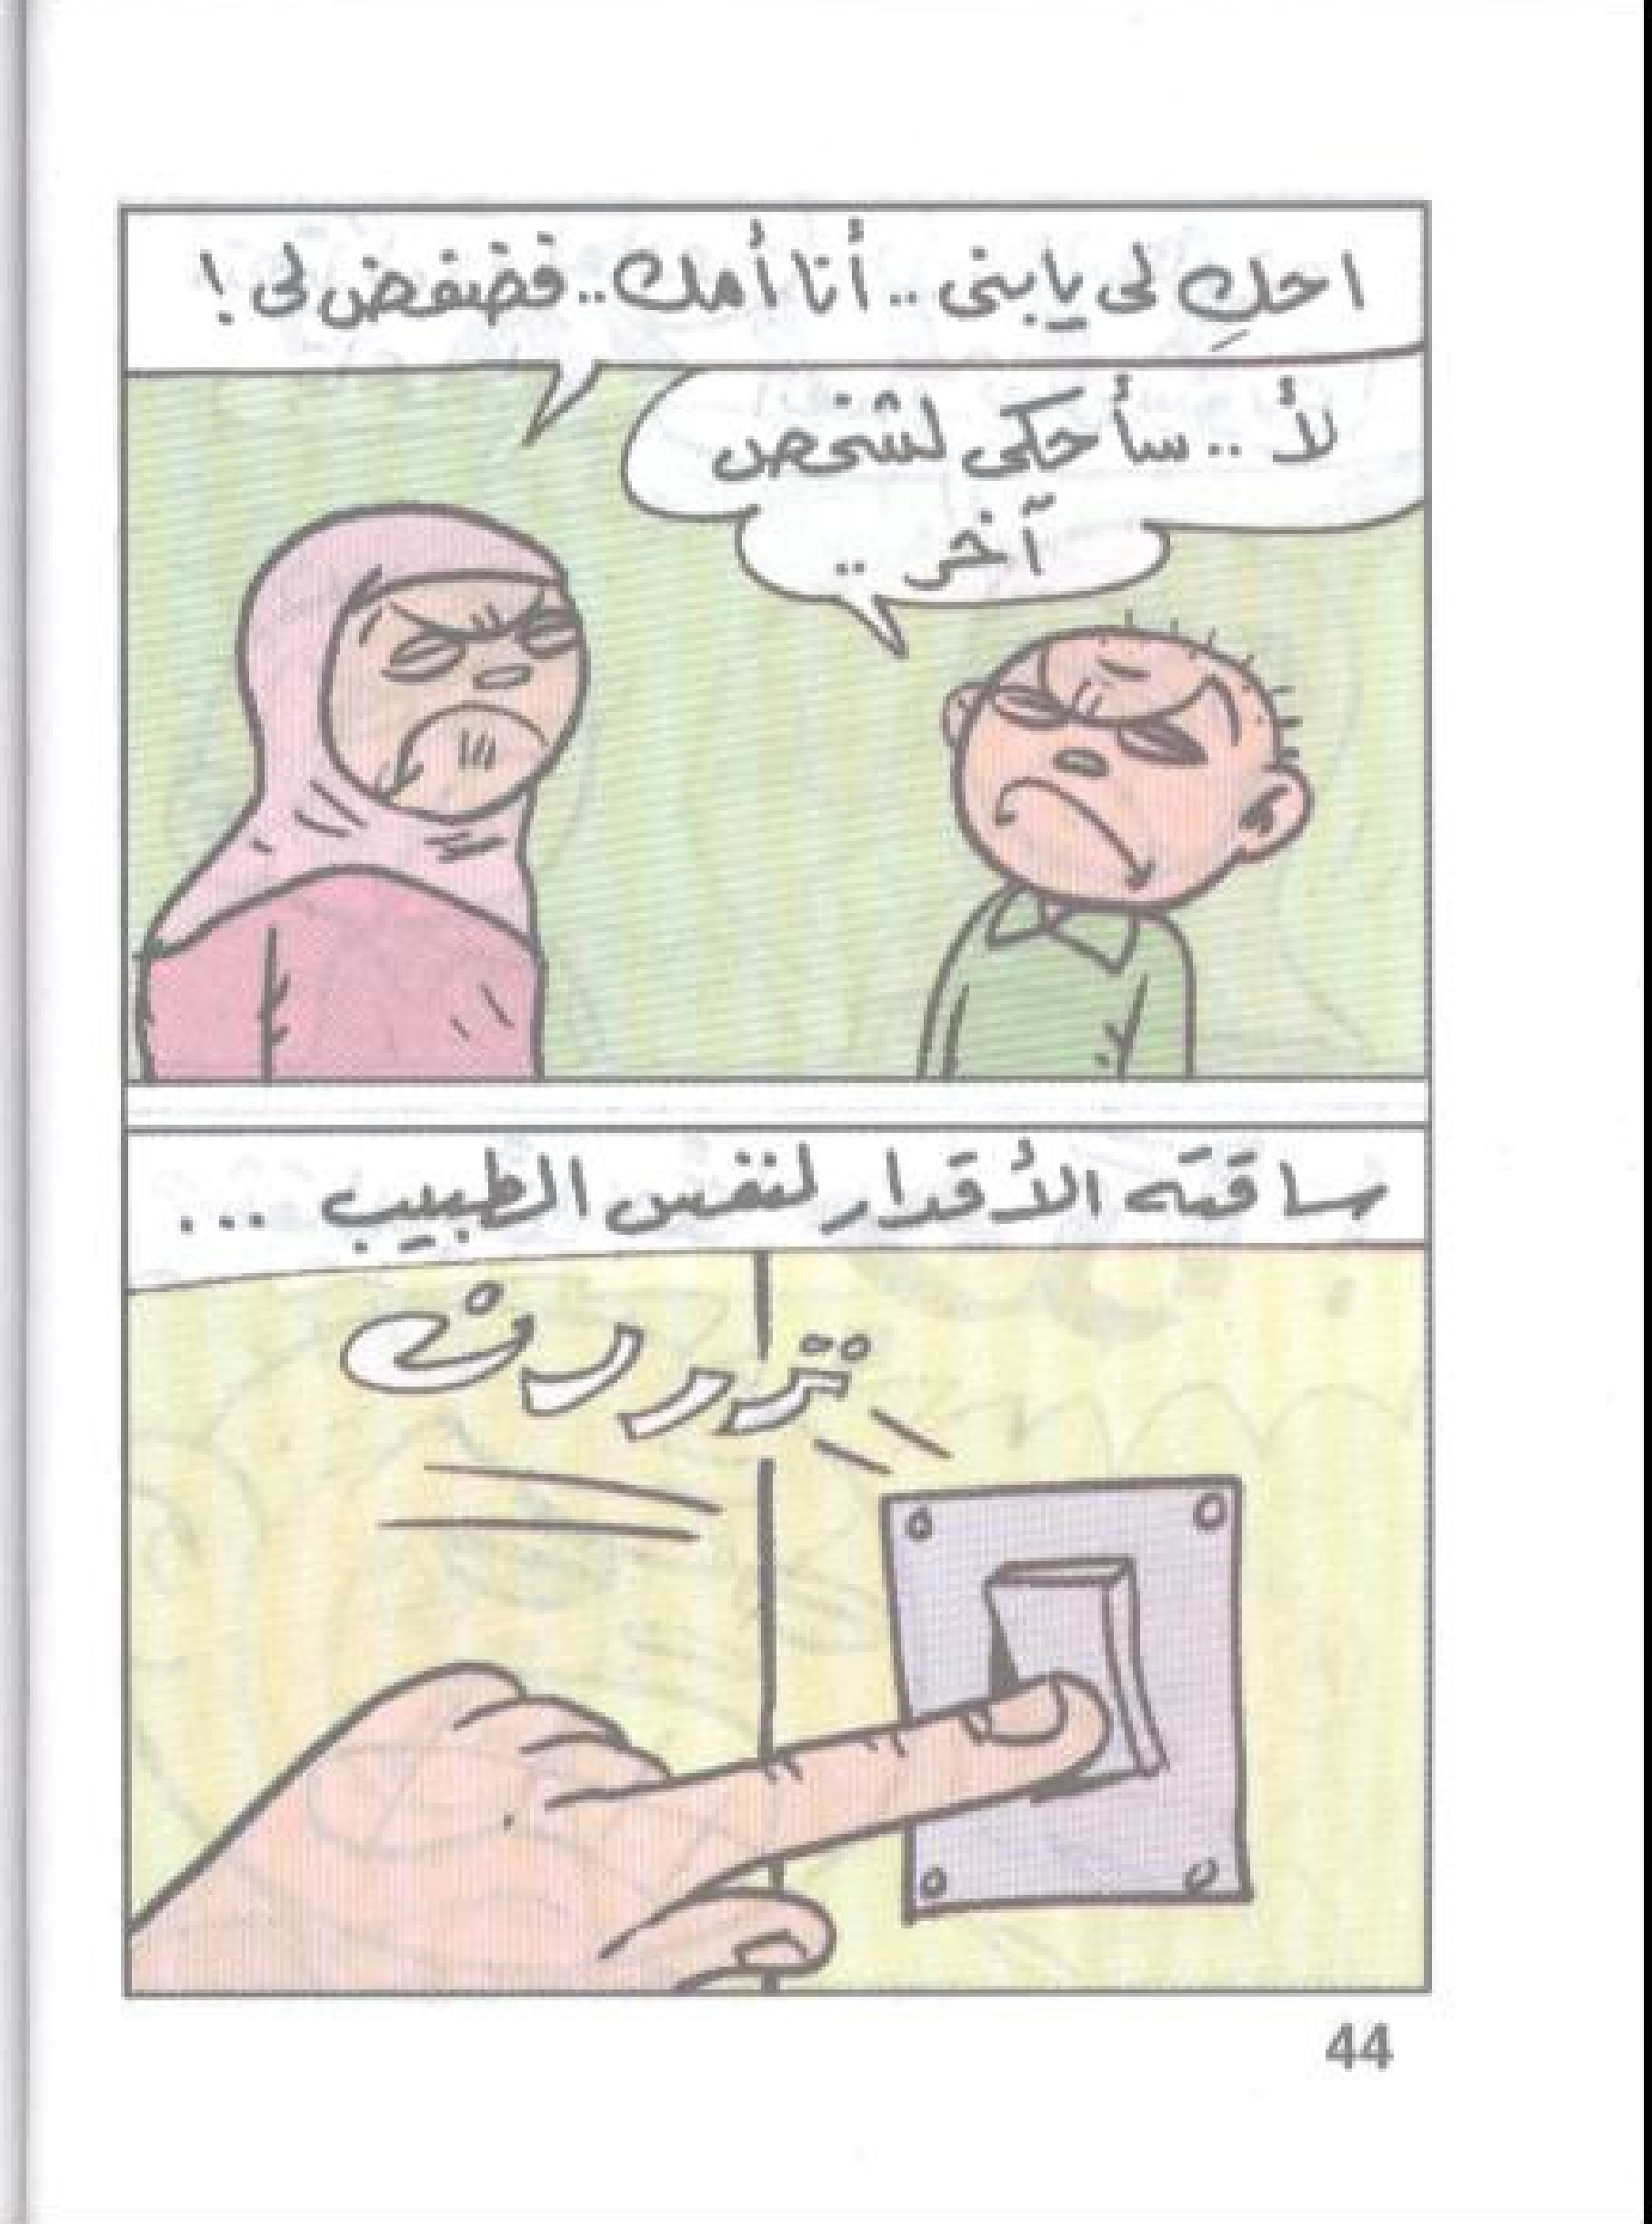 احكِ لى يابنى .. أنا أمك .. فضفض لى !
لأ .. سأحكى لشخص
آخر ..
ساقته الأقدار لنفس الطبيب ...
تررررن
44